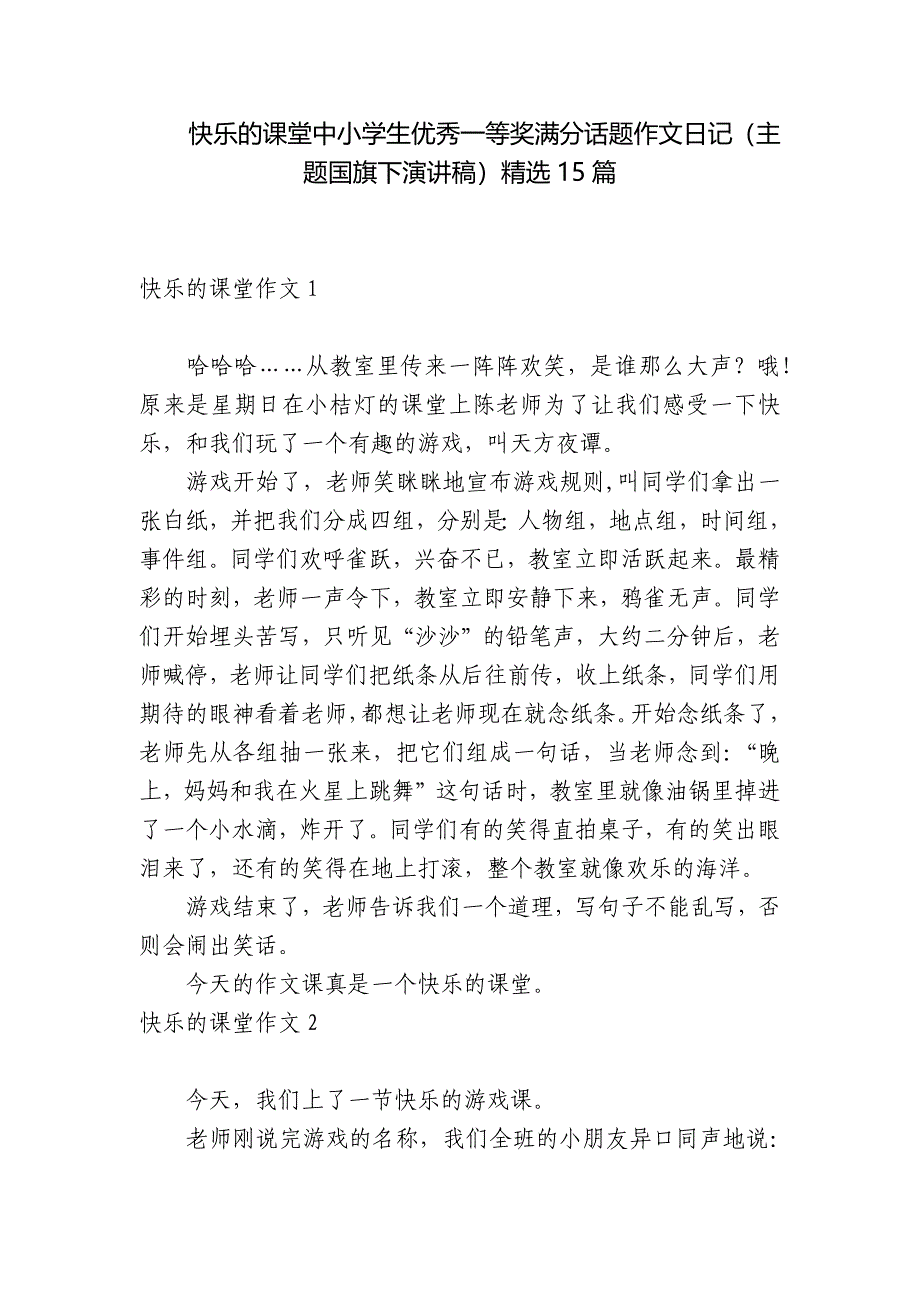 快乐的课堂中小学生优秀一等奖满分话题作文日记（主
题国旗下演讲稿）精选 15 篇
快乐的课堂作文 1
哈哈哈……从教室里传来一阵阵欢笑，是谁那么大声？哦！
原来是星期日在小桔灯的课堂上陈老师为了让我们感受一下快
乐，和我们玩了一个有趣的游戏，叫天方夜谭。
游戏开始了，老师笑眯眯地宣布游戏规则,叫同学们拿出一
张白纸，并把我们分成四组，分别是：人物组，地点组，时间组，
事件组。同学们欢呼雀跃，兴奋不已，教室立即活跃起来。最精
彩的时刻，老师一声令下，教室立即安静下来，鸦雀无声。同学
们开始埋头苦写，只听见“沙沙”的铅笔声，大约二分钟后，老
师喊停，老师让同学们把纸条从后往前传，收上纸条，同学们用
期待的眼神看着老师，都想让老师现在就念纸条。开始念纸条了，
老师先从各组抽一张来，把它们组成一句话，当老师念到：“晚
上，妈妈和我在火星上跳舞”这句话时，教室里就像油锅里掉进
了一个小水滴，炸开了。同学们有的笑得直拍桌子，有的笑出眼
泪来了，还有的笑得在地上打滚，整个教室就像欢乐的海洋。
游戏结束了，老师告诉我们一个道理，写句子不能乱写，否
则会闹出笑话。
今天的作文课真是一个快乐的课堂。
快乐的课堂作文 2
今天，我们上了一节快乐的游戏课。
老师刚说完游戏的名称，我们全班的小朋友异口同声地说：